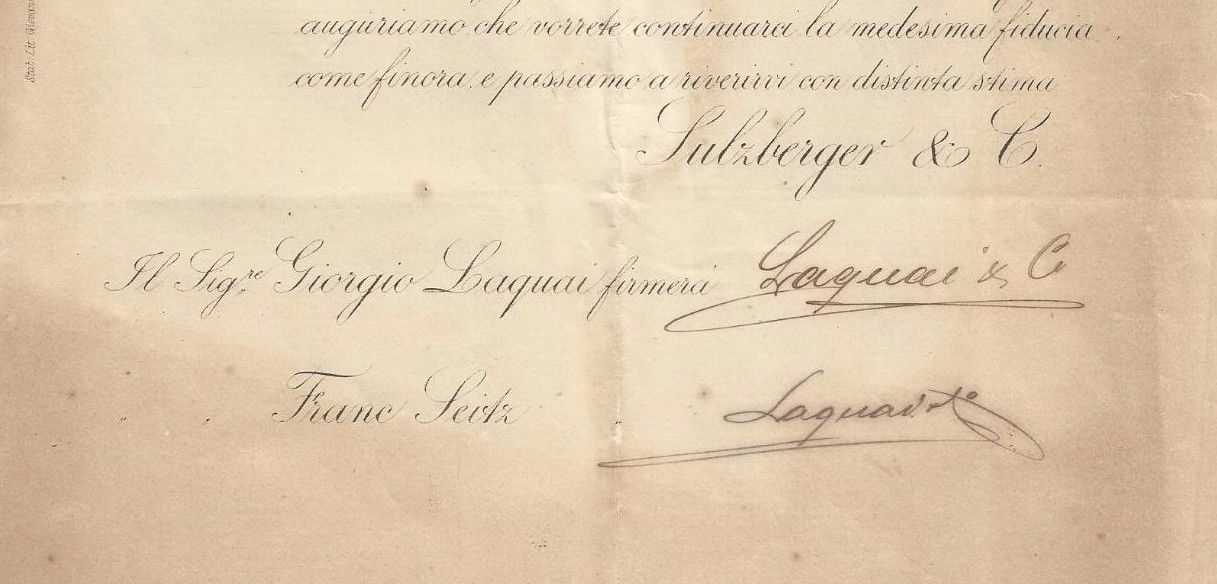 auguriamo, che vorrete continuarci la medesima fiducia
come finora, e passiamo a riverirvi con distinta stima
Sulzberger & C.
Il Sig.re Giorgio Laquai firmerà Laquai & C
„ „ Franc Seitz „ Laquai & Co
Stab. Lit.